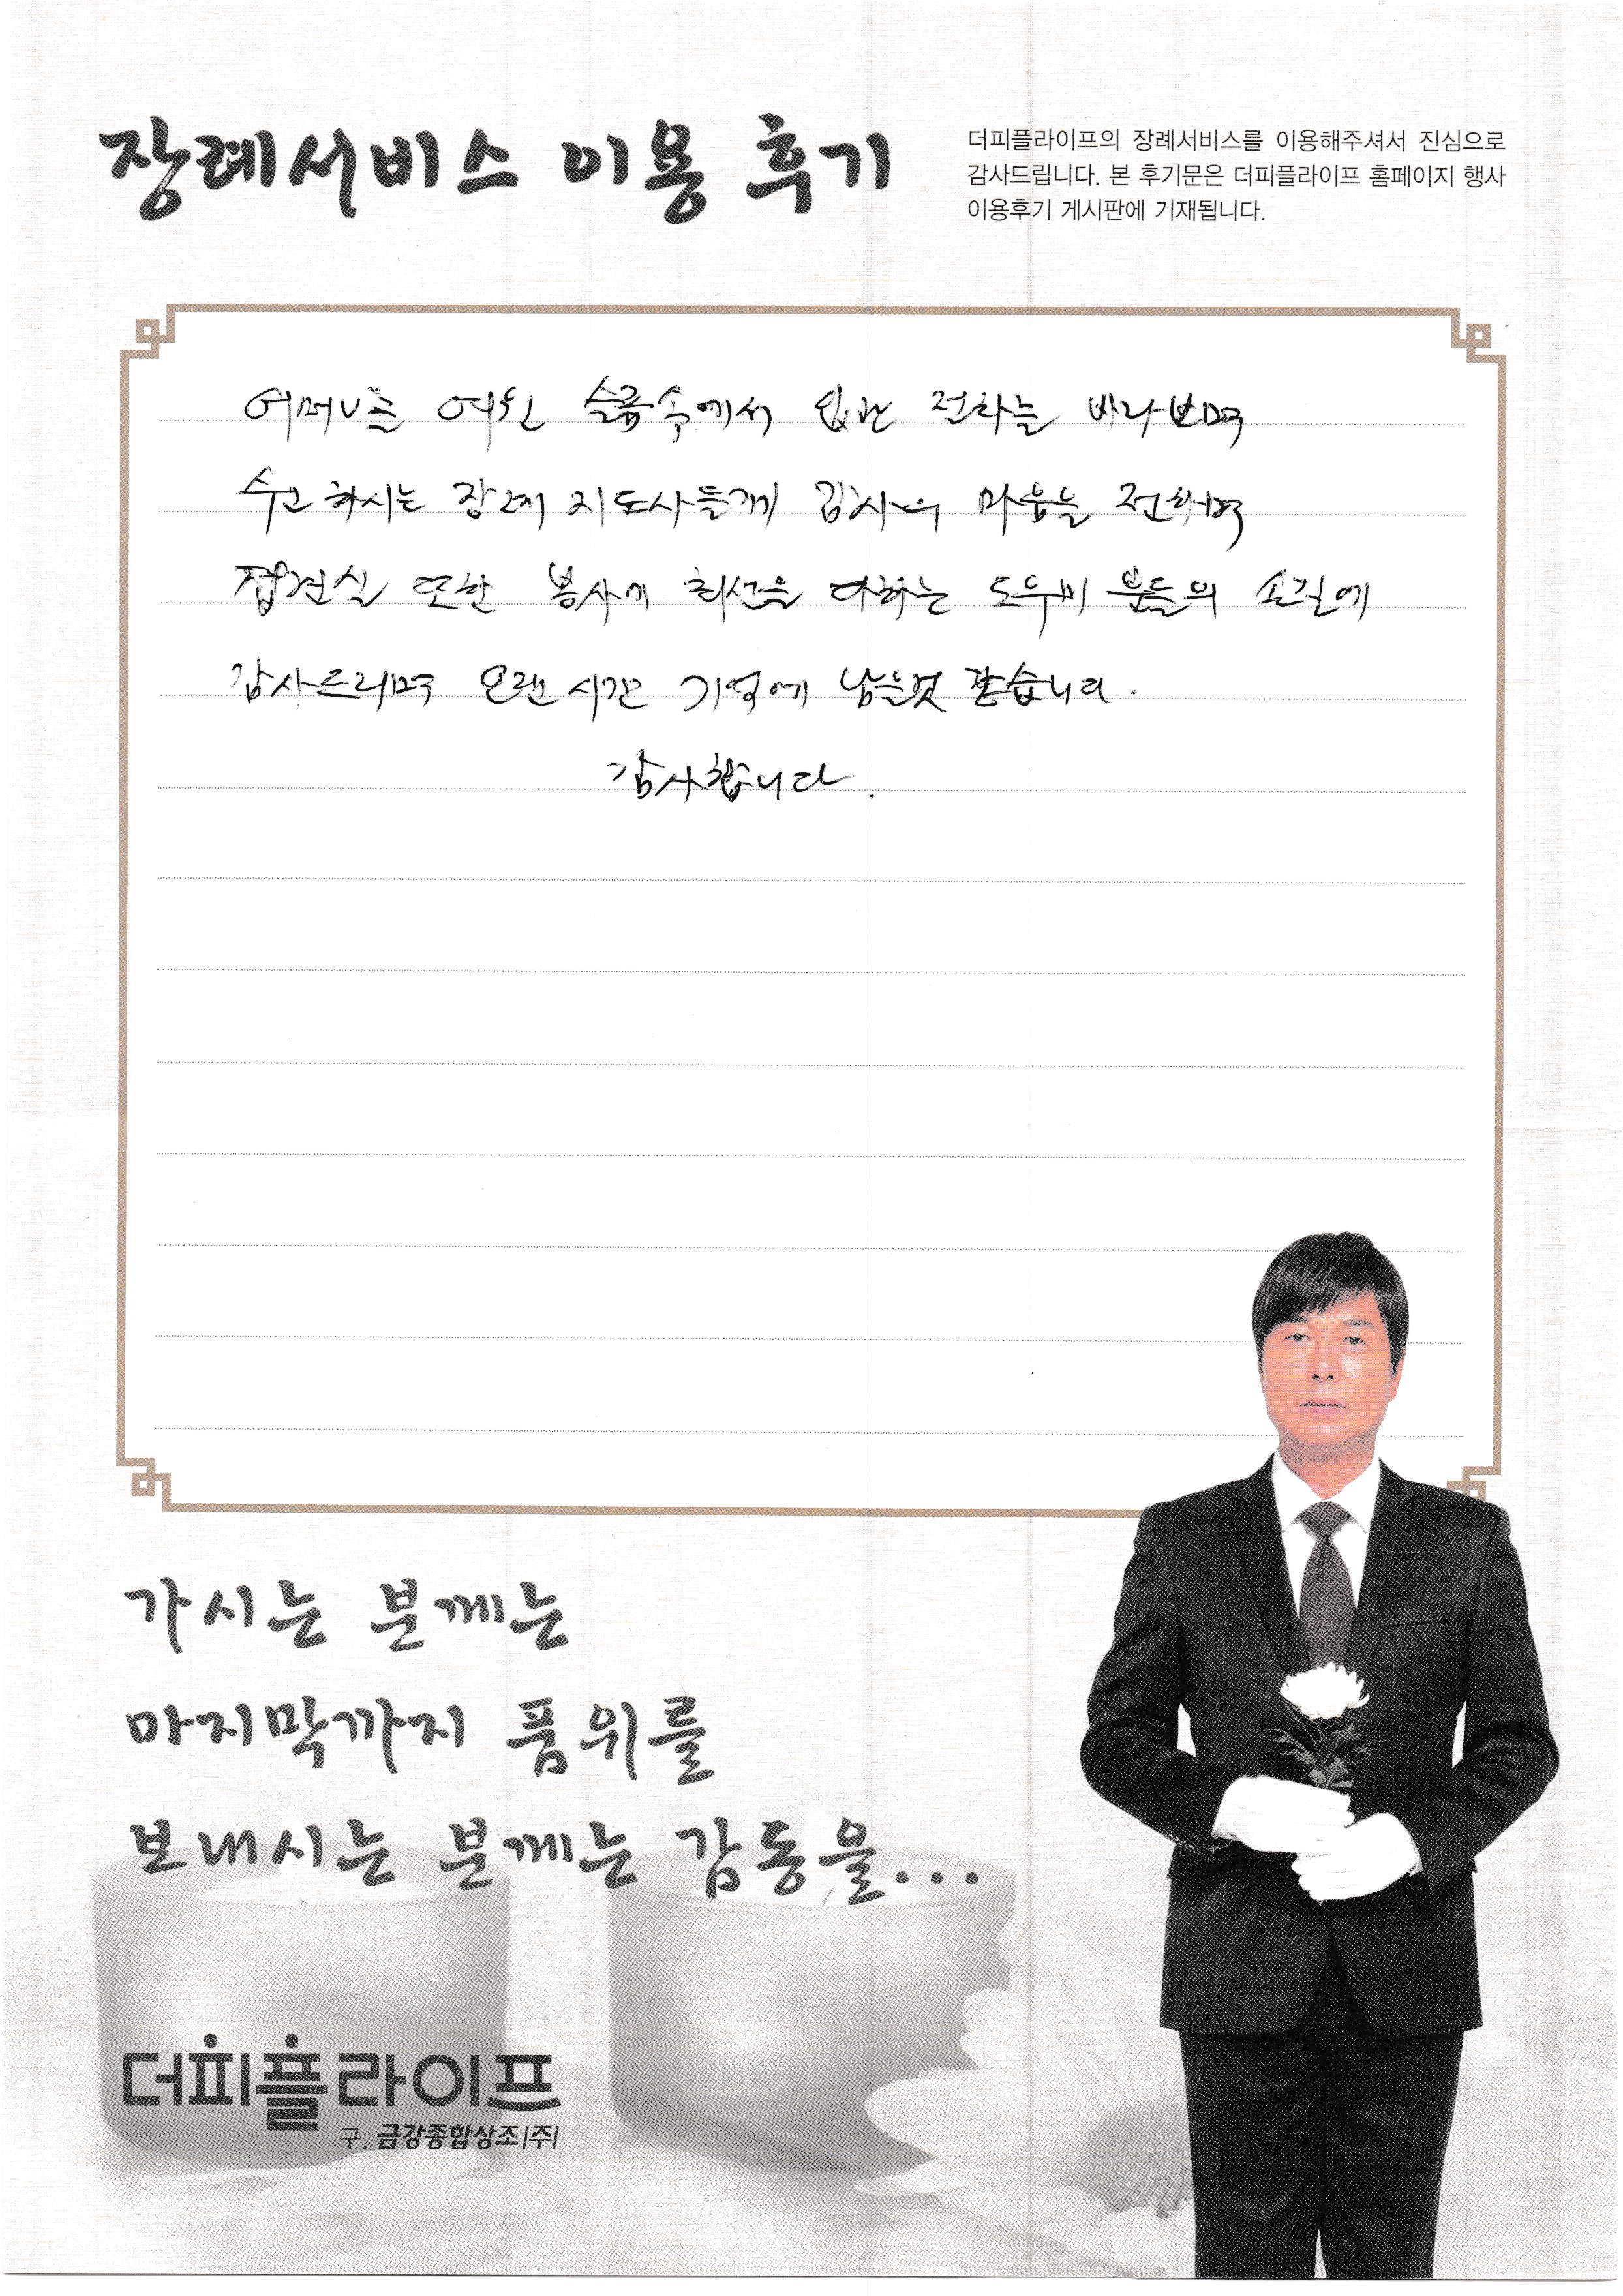 장례서비스 이용 후기
더피플라이프의 장례서비스를 이용해주셔서 진심으로
감사드립니다. 본 후기문은 더피플라이프 홈페이지 행사
이용후기 게시판에 기재됩니다.
어머니를 여윈 슬픔속에서 입관 전하는 바라보며
수고하시는 장례 지도사들께 감사의 마음을 전하며
접견실 또한 봉사에 최선을 다하는 도우미 분들의 손길에
감사드리며 오랜 시간 기억에 남을것 같습니다.
감사합니다.
가시는 분께는
마지막까지 품위를
보내시는 분께는 감동을...
더피플라이프
구. 금강종합상조(주)